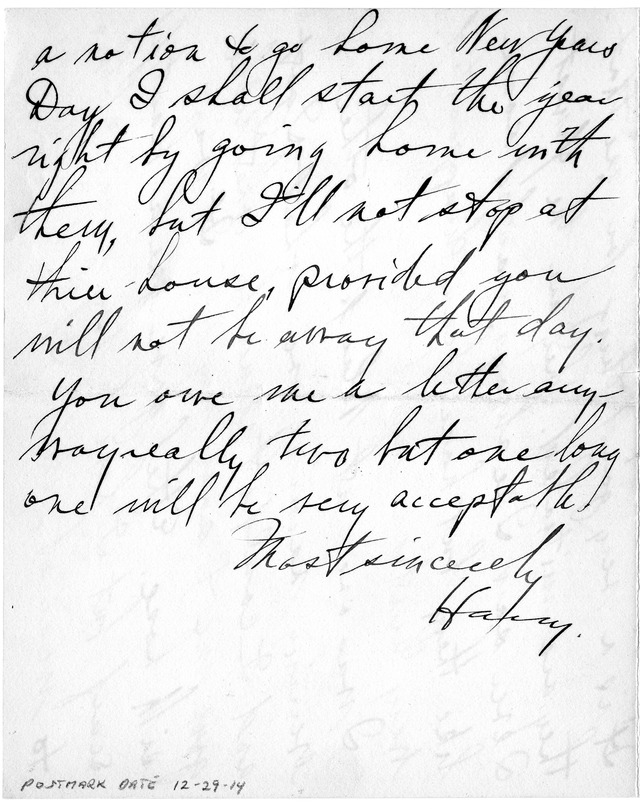 a notion to go home New Years
Day I shall start the year
right by going home with
them, but I'll not stop at
thier house, provided you
will not be away that day.
You owe me a letter any-
way really two but one long
one will be very acceptable.
Most sincerely
Harry.
POSTMARK DATE 12-29-14